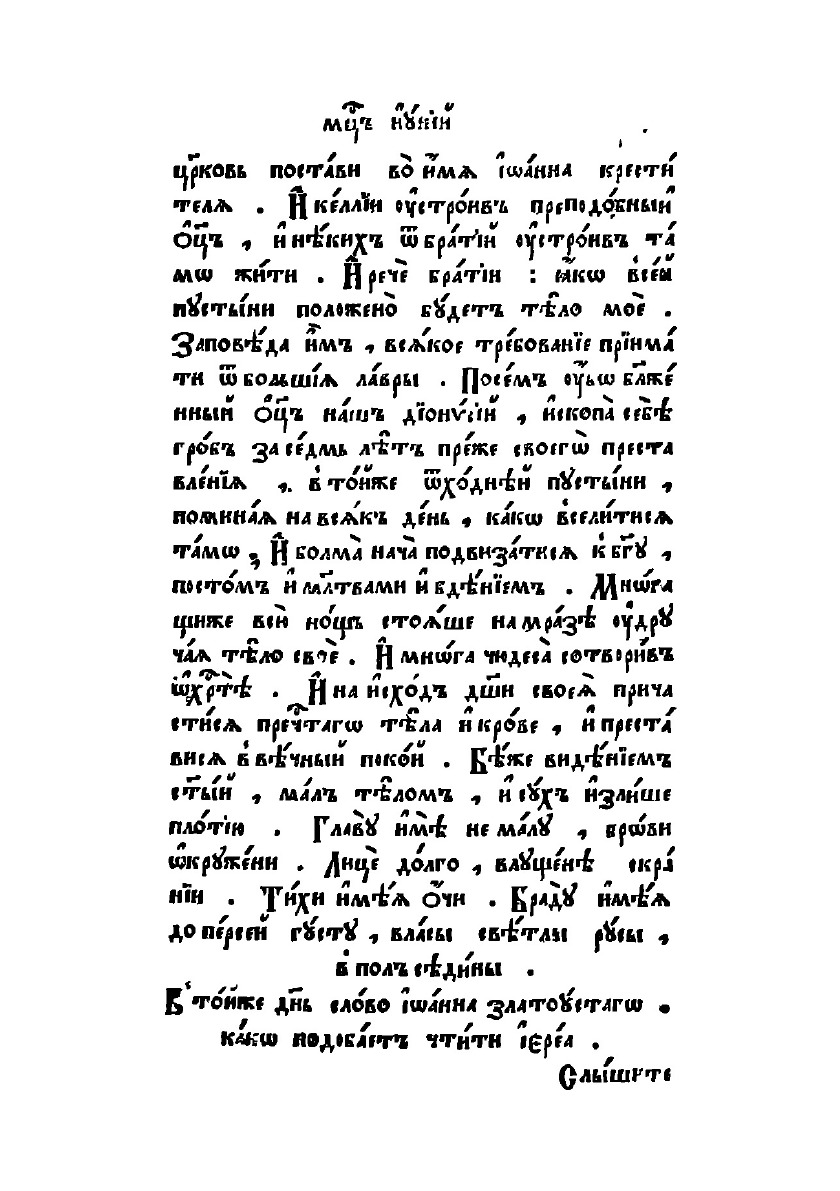 мцⷭ҇ъ і҆ю́нїй
цр҃ковь поста́ви во̀ и҆́мѧ і҆ѡа́нна крести́
телѧ . И҆ ке́ллїи ᲂу҆стро́ивъ преподо́бный
ѻ҆ц҃ъ , и҆ нѣ́кихъ ѿ бра́тїй ᲂу҆стро́ивъ та́
мѡ жи́ти . И҆ речѐ бра́тїи : ꙗ҆́кѡ в̾ се́й
пꙋсты́ни положено̀ бꙋ́детъ тѣ́ло моѐ .
Заповѣ́да и҆̀мъ , всѧ́кое тре́бованїе прїима́
ти ѿ больши́ѧ ла́вры . Посе́мъ ᲂу҆́бѡ бл҃же́
нный ѻ҆ц҃ъ на́шъ дїонѵ́сїй , и҆скопа̀ себѣ̀
гро́бъ за се́дмь лѣ́тъ пре́же своегѡ̀ преста
вле́нїѧ , в̾ то́йже ѿхо́днѣй пꙋсты́ни ,
помина́ѧ на всѧ́къ де́нь , ка́кѡ в̾сели́тисѧ
та́мѡ , И҆ болма̀ нача̀ подвиза́тисѧ к̾ бг҃ꙋ ,
посто́мъ и҆ мл҃твами и҆ бдѣ́нїемъ . Мнѡ́га
щиже всю̀ но́щь стоѧ́ше на мра́зѣ ᲂу҆дрꙋ
ча́ѧ тѣ́ло своѐ . И҆ мнѡ́га чюдеса̀ сотвори́въ
ѡ҆ хрⷭ҇тѣ̀ . И҆ на и҆схо́дъ дш҃и своеѧ̀ прича
сти́сѧ пречⷭ҇тагѡ тѣ́ла и҆ кро́ве , и҆ преста́
висѧ в̾ вѣ́чный поко́й . Бѣ́же видѣ́нїемъ
ст҃ы́й , ма́лъ тѣ́ломъ , и҆ сꙋ́хъ и҆зли́ше
пло́тїю . Главꙋ̀ и҆мѣ̀ не ма́лꙋ , брѡ́ви
ѡ҆крꙋже́ни . Лицѐ до́лго , влꙋщенѣ̀ скра́
нїи . Ти́хи и҆мѣ́ѧ ѻ҆́чи . Брадꙋ̀ и҆мѣ́ѧ
до пе́рсей гꙋ́стꙋ , власы̀ свѣ́тлы рꙋ́сы ,
в̾ полъ сѣди́ны .
В̾ то́йже дн҃ь сло́во і҆ѡа́нна златоꙋ́стагѡ .
ка́кѡ подоба́етъ чти́ти і҆ере́а .
Слы́шите